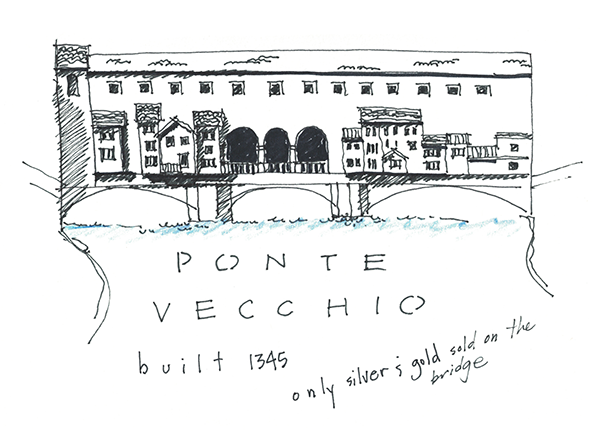 PONTE
VECCHIO
built 1345
only silver & gold sold on the
bridge